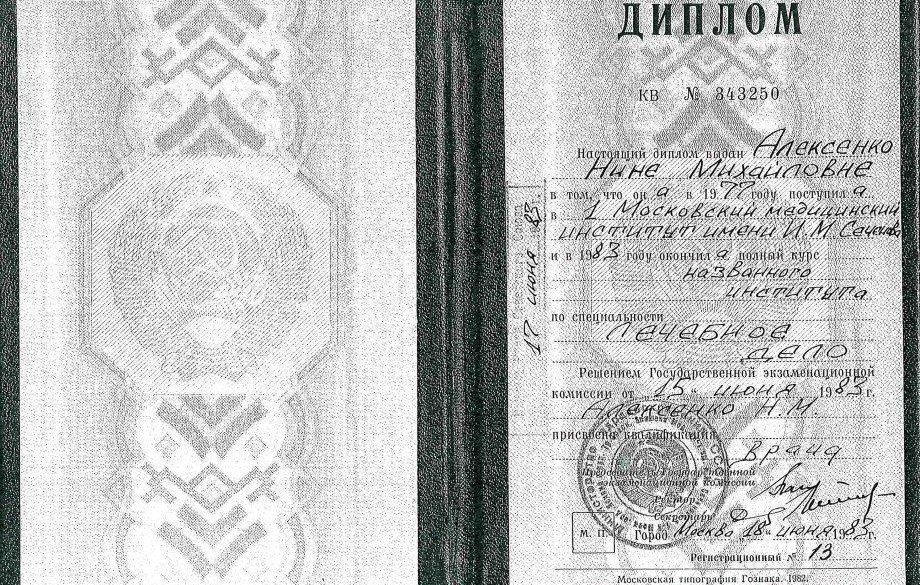 ДИПЛОМ
КВ № 343250
Настоящий диплом выдан Алексенко
Нине Михайловне
в том, что он а в 1977 году поступил а
в 1 Московский медицинский
институт имени И.М. Сеченова
и в 1983 году окончил а полный курс
названного
института
по специальности
Лечебное
дело
Решением Государственной экзаменационной
комиссии от „15“ июня 1983 г.
Алексенко Н.М.
присвоена квалификация
врача
Председатель Государственной
экзаменационной комиссии
Ректор
Секретарь
М. П. Город Москва 18 июня 1983 г.
Регистрационный № 13
Московская типография Гознака. 1982.
17 июня 83